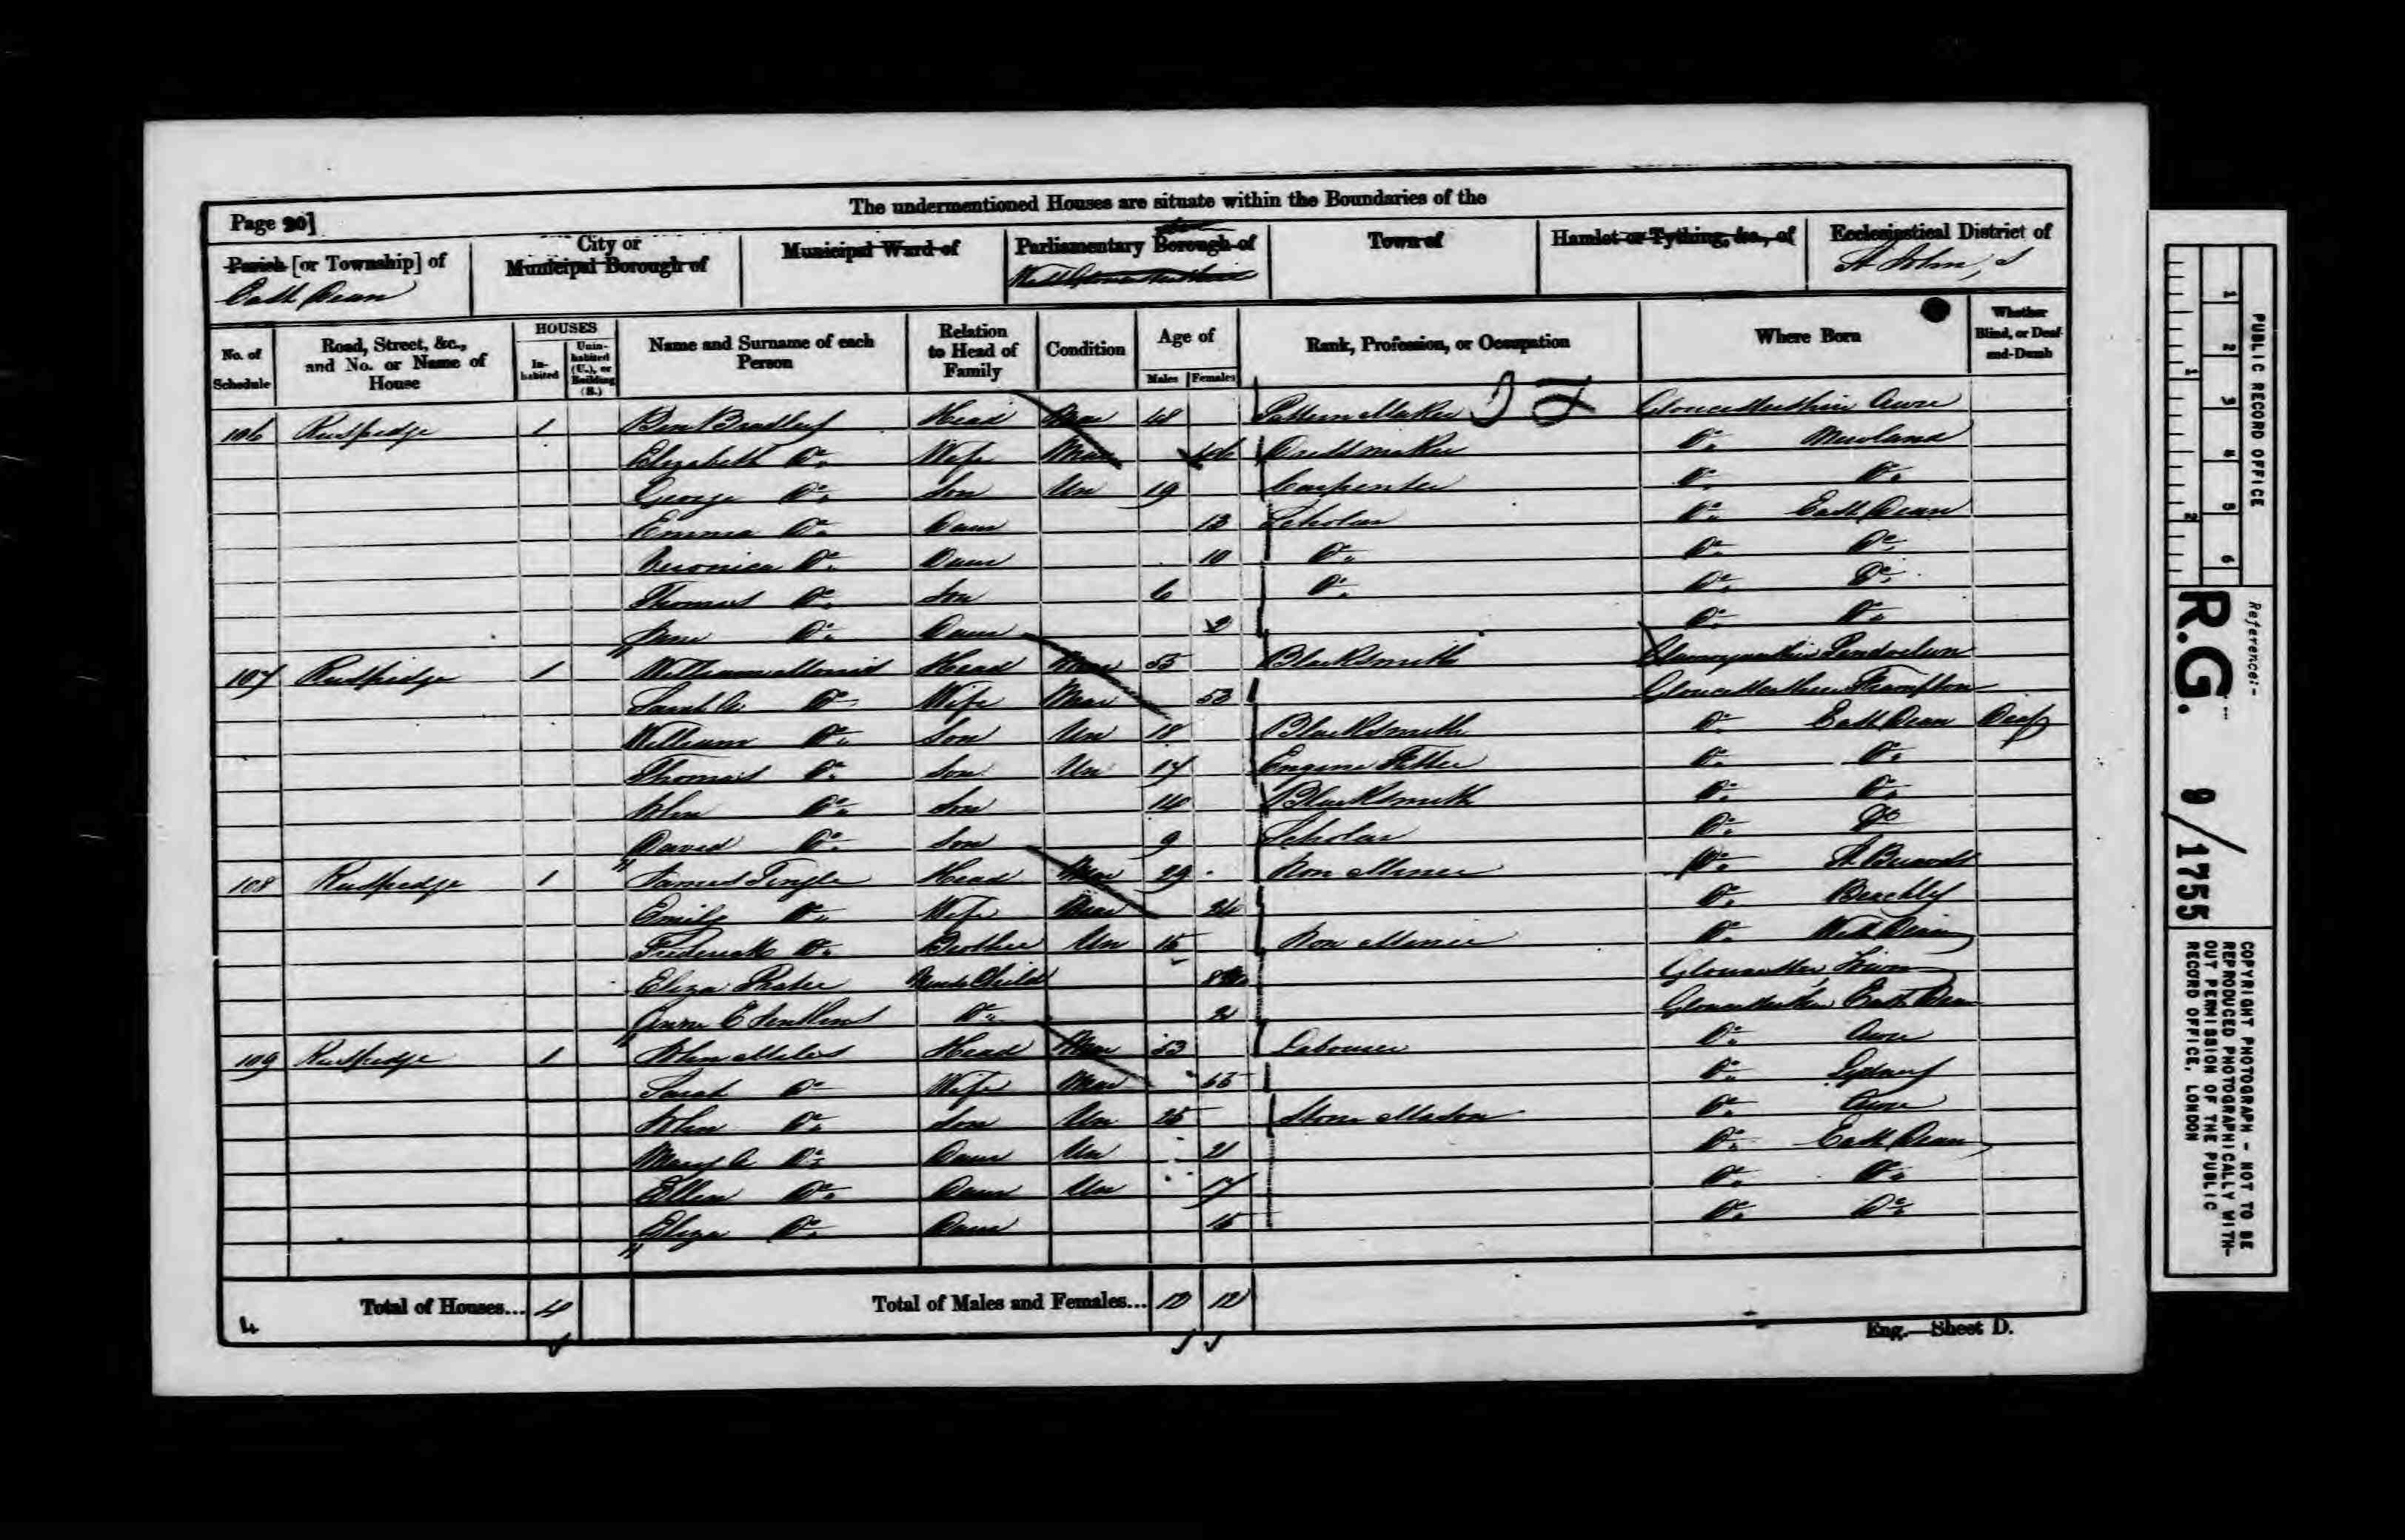 The undermentioned Houses are situate within the Boundaries of the
Page 20]
Parish [or Township] of
East Dean
City or
Municipal Borough of
Municipal Ward of
Parliamentary Borough of
Town of
Hamlet or Tything, &c., of
Ecclesiastical District of
St John's
No. of Schedule
Road, Street, &c., and No. or Name of House
HOUSES
In-habited
Unin-habited (U.), or Building (B.)
Name and Surname of each Person
Relation to Head of Family
Condition
Age of
Males Females
Rank, Profession, or Occupation
Where Born
Whether Blind, or Deaf-and-Dumb
106 Ruspedge 1 Ben Bradley Head Mar 48 Pattern Maker Gloucestershire Awre
Elizabeth Do. Wife Mar 46 Dressmaker Do. Newland
George Do. Son Un 19 Carpenter Do. Do.
Emma Do. Daur 13 Scholar Do. East Dean
Veronica Do. Daur 10 Do. Do. Do.
Thomas Do. Son 6 Do. Do. Do.
Jane Do. Daur 2 Do. Do.
107 Ruspidge 1 William Morris Head Mar 55 Blacksmith Glamorganshire
Sarah A Do. Wife Mar 53 Gloucestershire Frampton
William Do. Son Un 18 Blacksmith Do. East Dean Deaf
Thomas Do. Son Un 17 Engine Fitter Do. Do.
John Do. Son 14 Blacksmith Do. Do.
David Do. Son 9 Scholar Do. Do
108 Ruspedge 1 James Tingle Head Mar 29 Iron Miner Do. St Briavels
Emily Do. Wife Mar 24 Do. Beachley
Frederick Do. Brother Un 15 Iron Miner Do. West Dean
Eliza Nurse Child 8 Mo. Gloucester
Anne E Jenkins Do. 2 Gloucestershire East Dean
109 Ruspedge 1 John Miles Head Mar 53 Labourer Do. Awre
Sarah Do. Wife Mar 55 Do. Lydney
John Do. Son Un 25 Stone Mason Do. Awre
Mary A Do. Daur Un 21 Do. East Dean
Ellen Do. Daur Un 17 Do. Do.
Eliza Do. Daur 15 Do. Do.
4 Total of Houses... 4 Total of Males and Females... 12 12
Eng.—Sheet D.
PUBLIC RECORD OFFICE
1 2 3 4 5 6
1 2
Reference:-
R.G. 9/1755
COPYRIGHT PHOTOGRAPH - NOT TO BE
REPRODUCED PHOTOGRAPHICALLY WITH-
OUT PERMISSION OF THE PUBLIC
RECORD OFFICE, LONDON